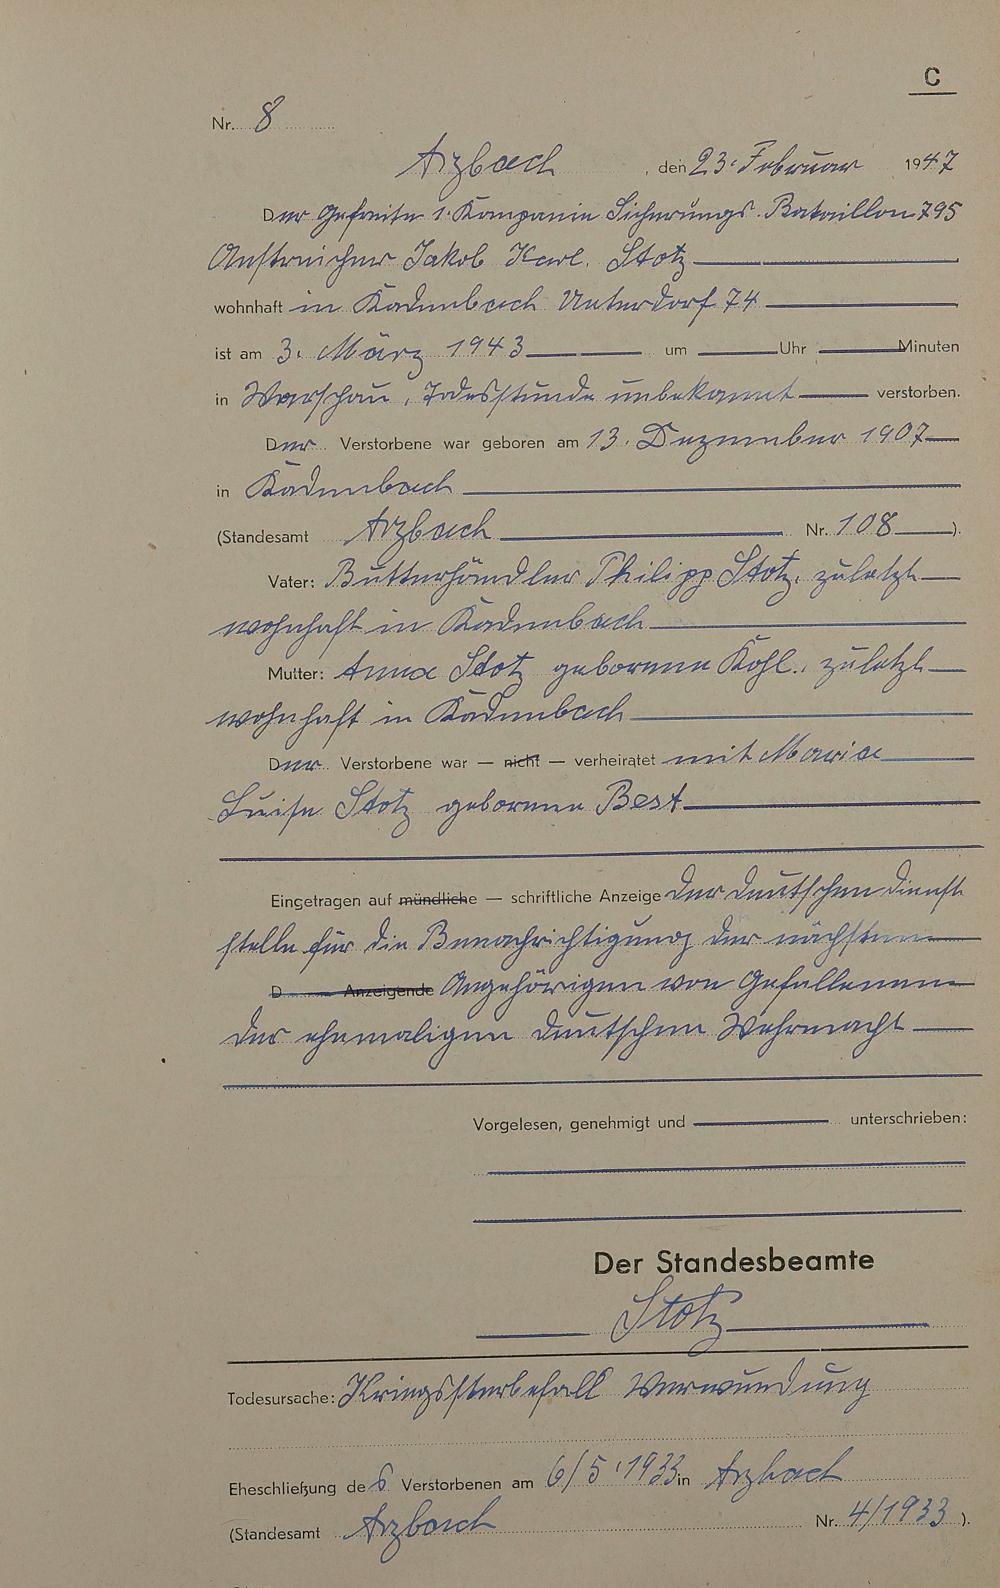 C
Nr. 8
Arzbach, den 23. Februar 1947
Der Gefreite 1. Kompanie Sicherungs-Bataillon 795
Anstreicher Jakob Karl Stotz
wohnhaft in Kadenbach Unterdorf 74
ist am 3. März 1943 um Uhr Minuten
in Warschau, Todesstunde unbekannt verstorben.
Der Verstorbene war geboren am 13. Dezember 1907
in Kadenbach
(Standesamt Arzbach Nr. 108).
Vater: Butterhändler Philipp Stotz, zuletzt
wohnhaft in Kadenbach
Mutter: Anna Stotz geborene Kohl, zuletzt
wohnhaft in Kadenbach
Der Verstorbene war — nicht — verheiratet mit Maria
Luise Stotz geborene Best
Eingetragen auf mündliche — schriftliche Anzeige der deutschen Dienst
stelle für die Benachrichtigung der nächsten
D Anzeigende Angehörigen von Gefallenen
der ehemaligen deutschen Wehrmacht
Vorgelesen, genehmigt und unterschrieben:
Der Standesbeamte
Stotz
Todesursache: Kriegssterbefall Verwundung
Eheschließung des Verstorbenen am 6/5.1933 in Arzbach
(Standesamt Arzbach Nr. 4/1933).